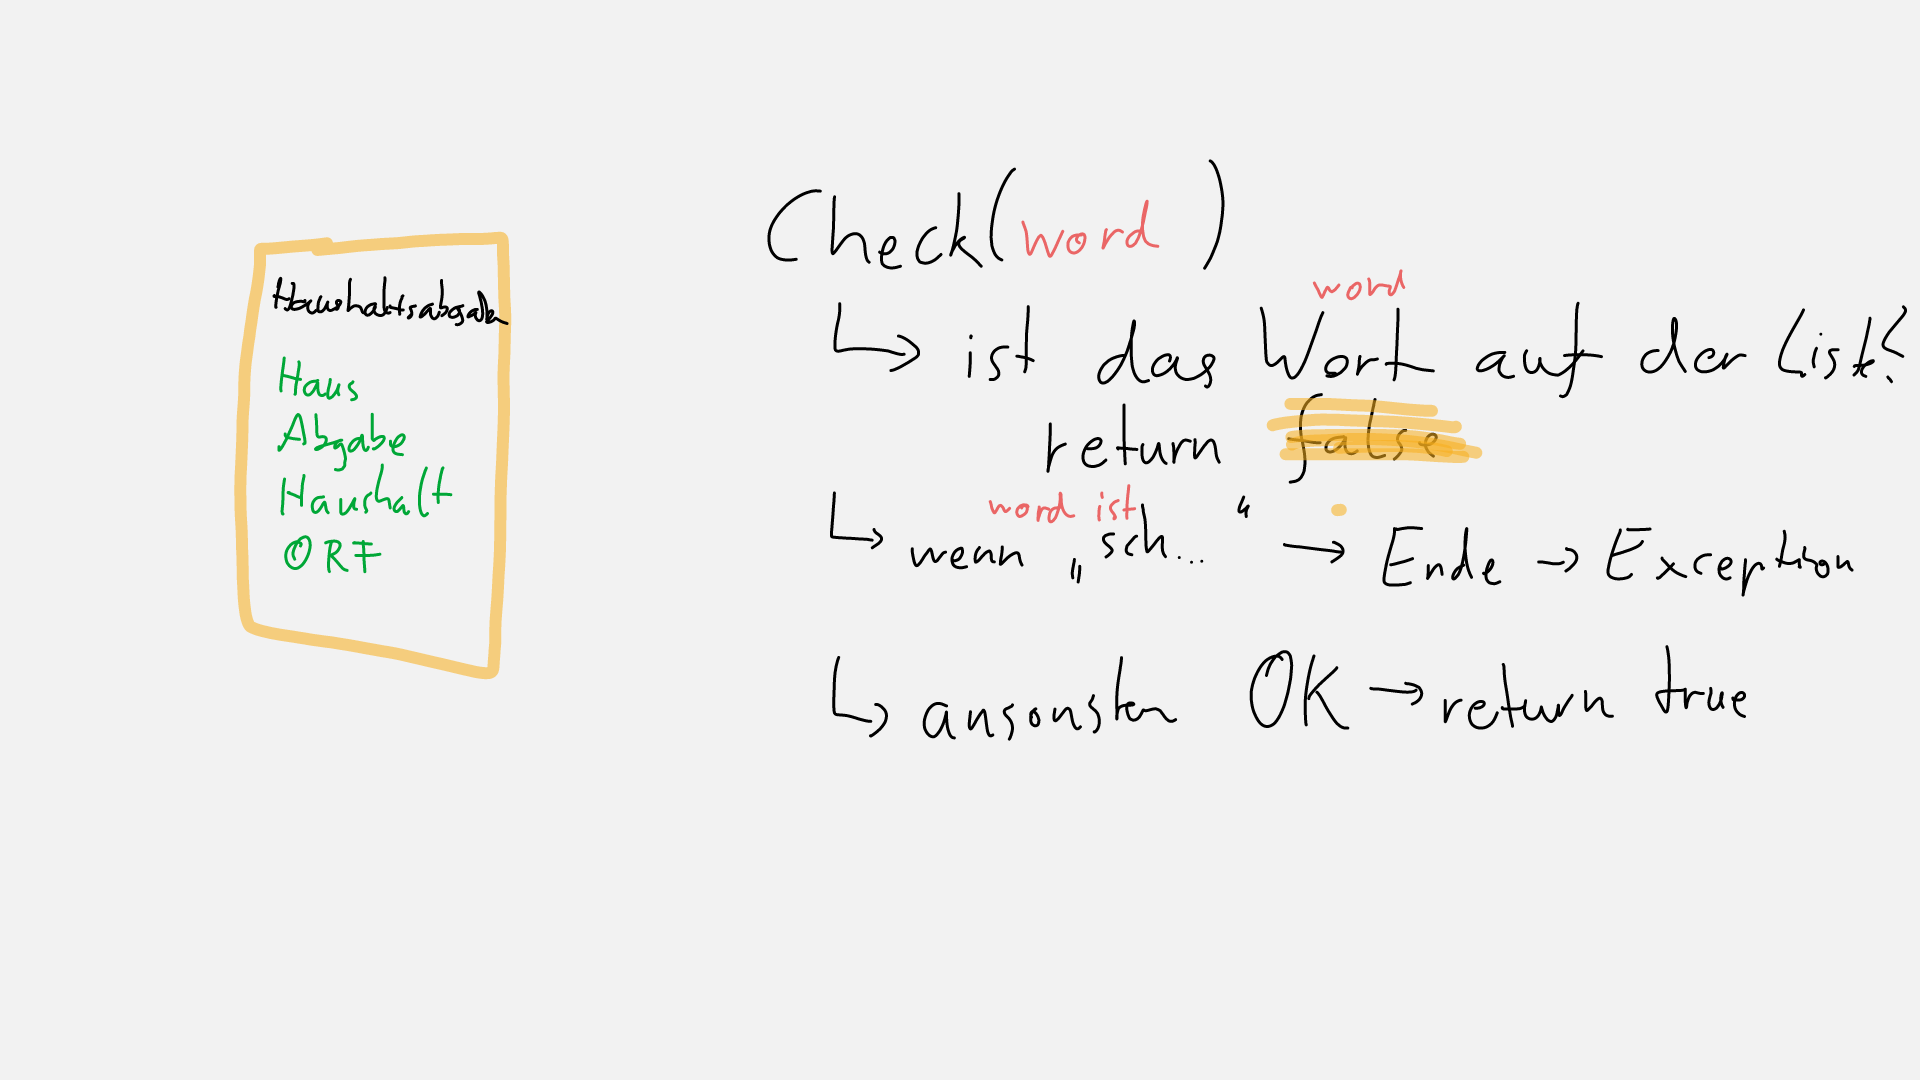 Haushaltsabgabe
Haus
Abgabe
Haushalt
ORF
Check(word)
word
↳ ist das Wort auf der Liste?
return false
word ist
↳ wenn „sch..." → Ende → Exception
↳ ansonsten OK → return true